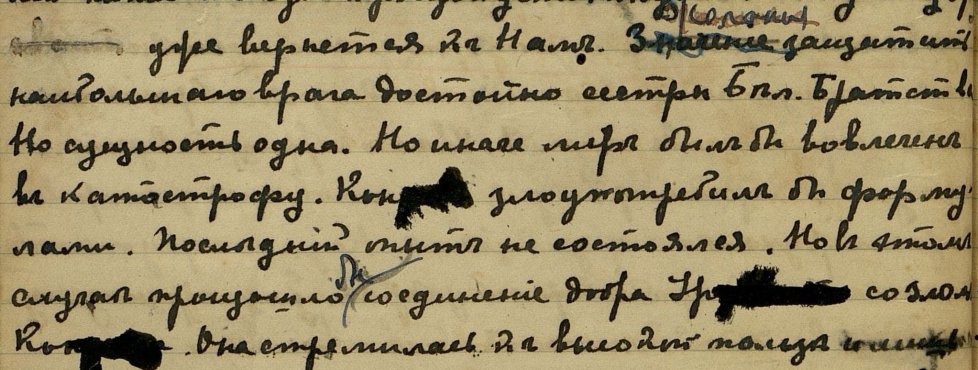 уже вернется къ Намъ. Значение защитить
наибольшаго врага достойно сестры Бѣл. Братства
Но сущность одна. Но иначе миръ былъ бы вовлеченъ
въ катастрофу. Кон злоупотребилъ бы форму-
лами. Послѣдній опытъ не состоялся. Но въ этомъ
случаѣ произошло бы соединеніе добра Ур со зломъ
Кон. Она стремилась къ высокой пользѣ